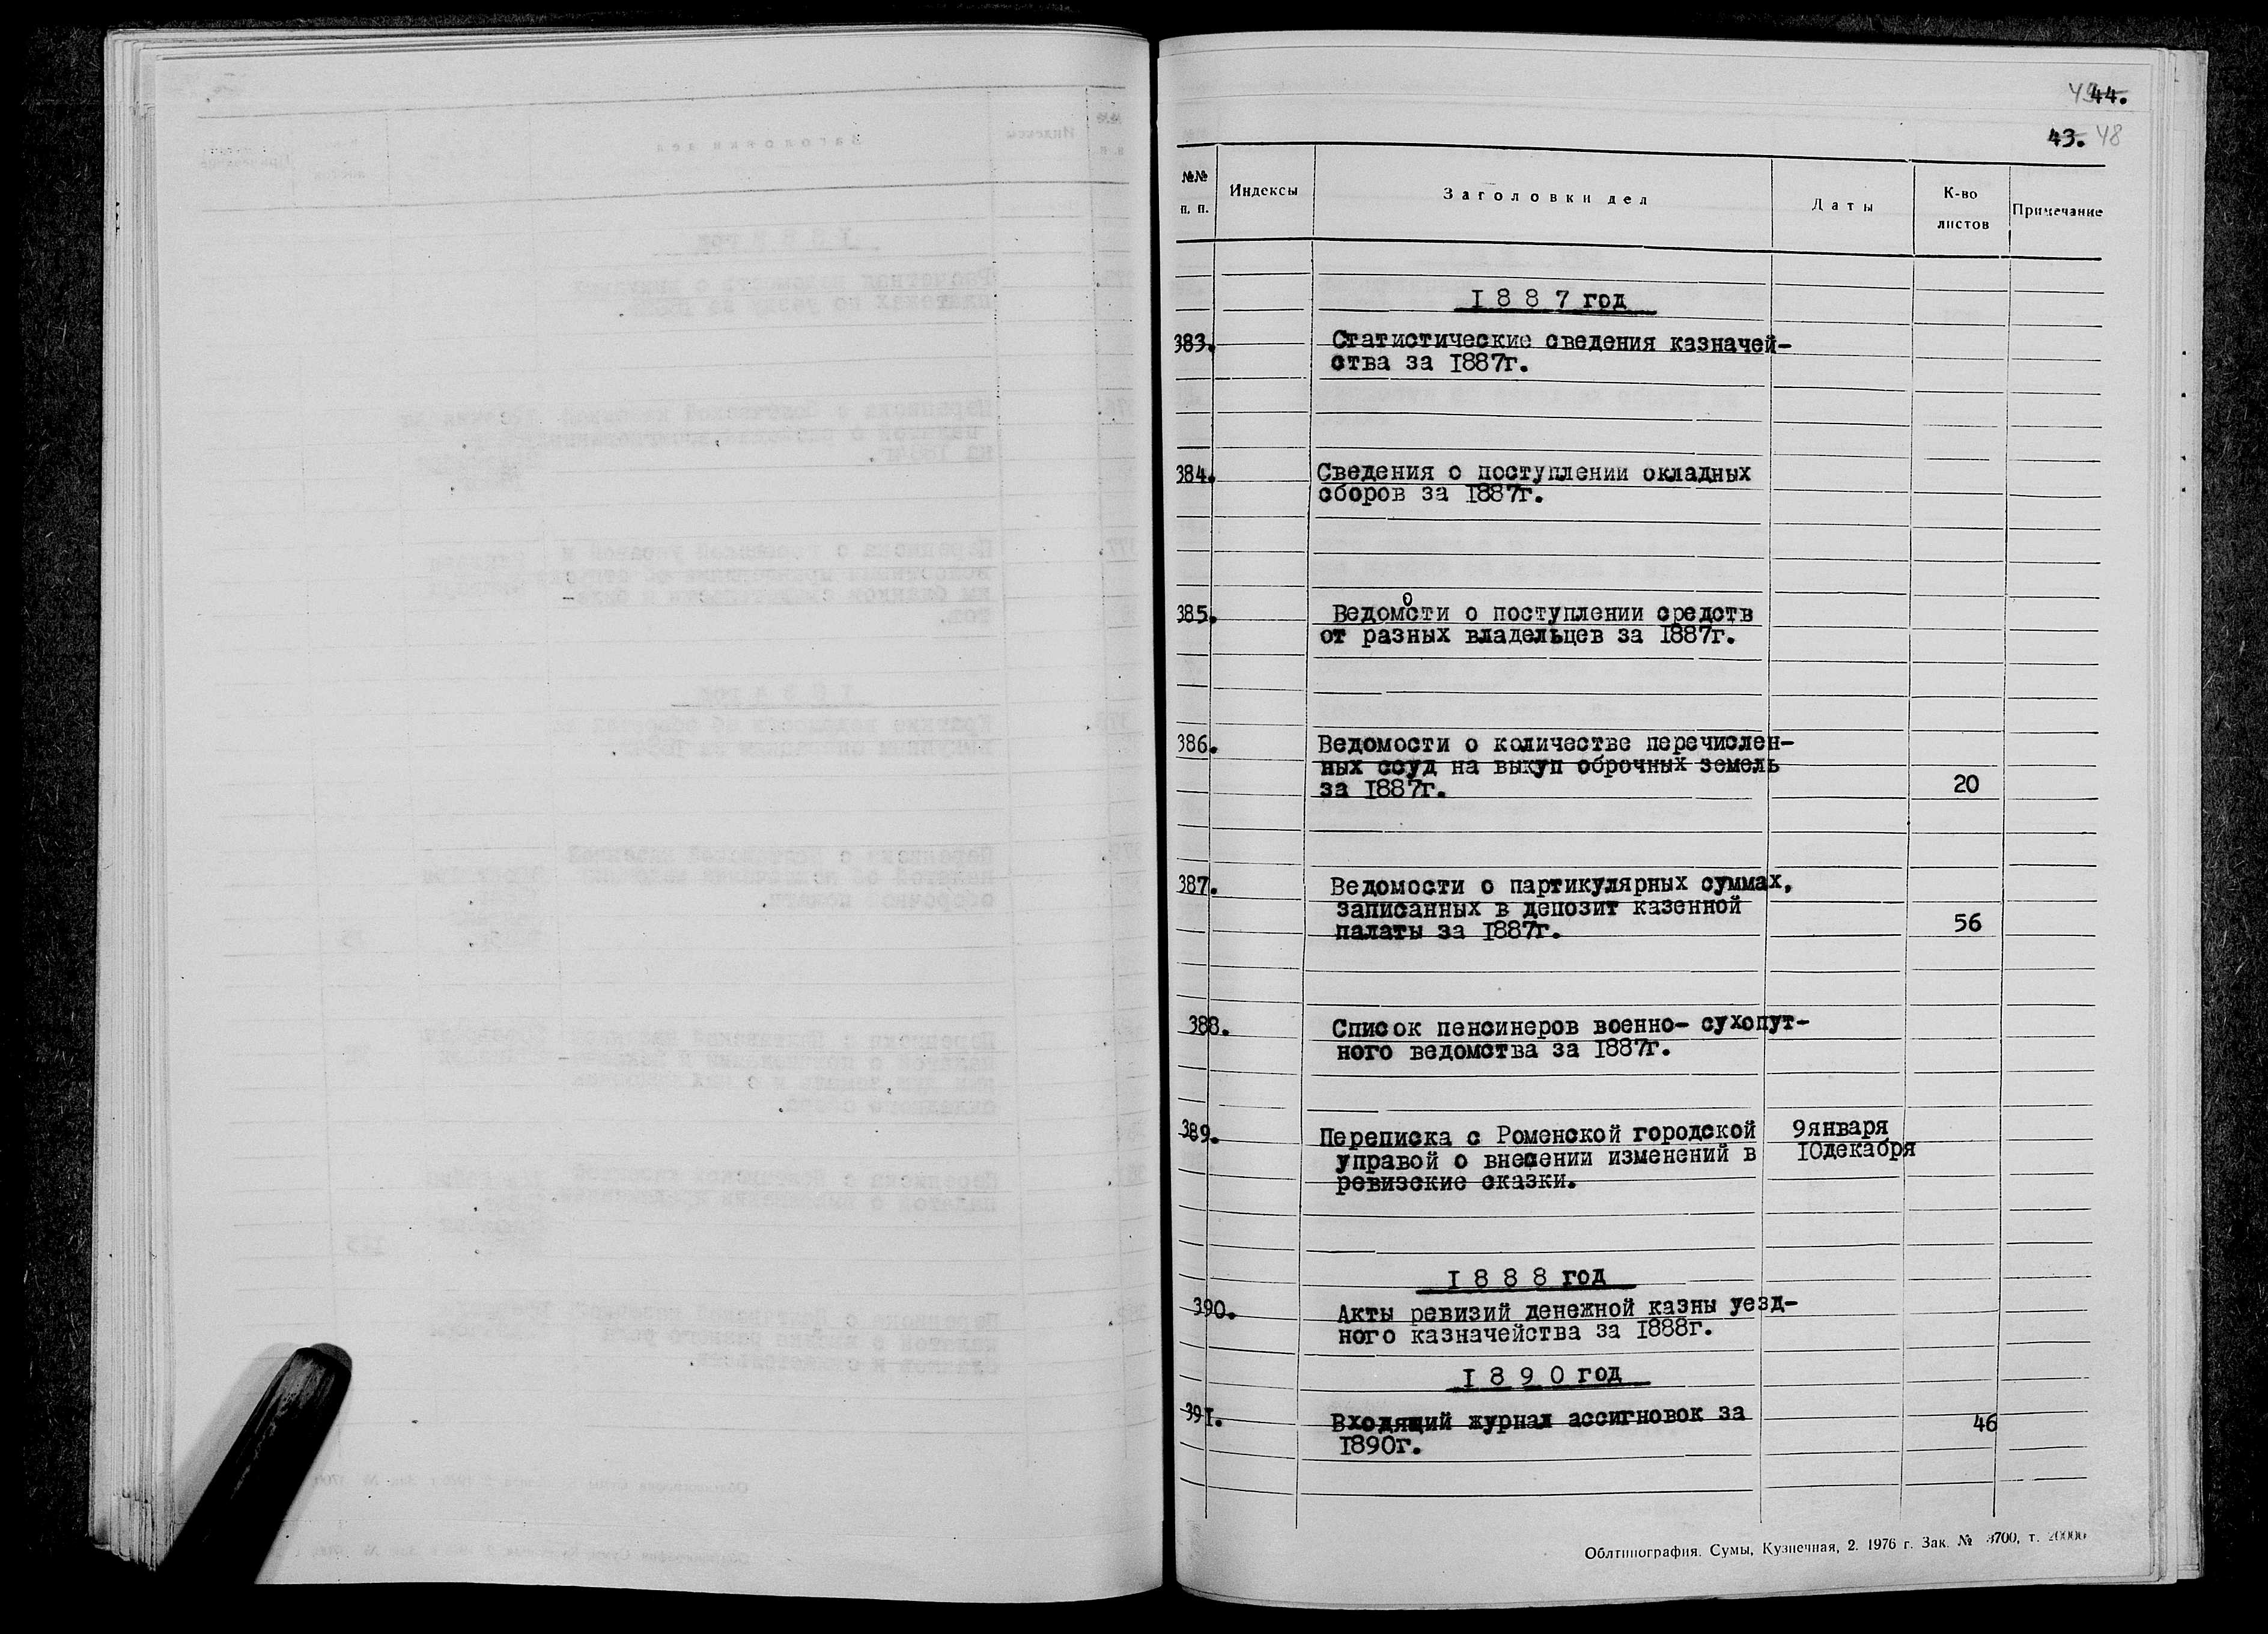 44.
43. 48
№№ п. п.
Индексы
Заголовки дел
Даты
К-во листов
Примечание
1887 год
383. Статистические сведения казначей-
ства за 1887г.
384. Сведения о поступлении окладных
сборов за 1887г.
385. Ведомости о поступлении средств
от разных владельцев за 1887г.
386. Ведомости о количестве перечислен-
ных ссуд на выкуп оброчных земель
за 1887г. 20
387. Ведомости о партикулярных суммах,
записанных в депозит казенной
палаты за 1887г. 56
388. Список пенсинеров военно- сухопут-
ного ведомства за 1887г.
389. Переписка с Роменской городской 9января
управой о внесении изменений в 10декабря
ревизские сказки.
1888 год
390. Акты ревизий денежной казны уезд-
ного казначейства за 1888г.
1890 год
391. Входящий журнал ассигновок за 46
1890г.
Облтипография. Сумы, Кузнечная, 2. 1976 г. Зак. № 3700, т. 20000